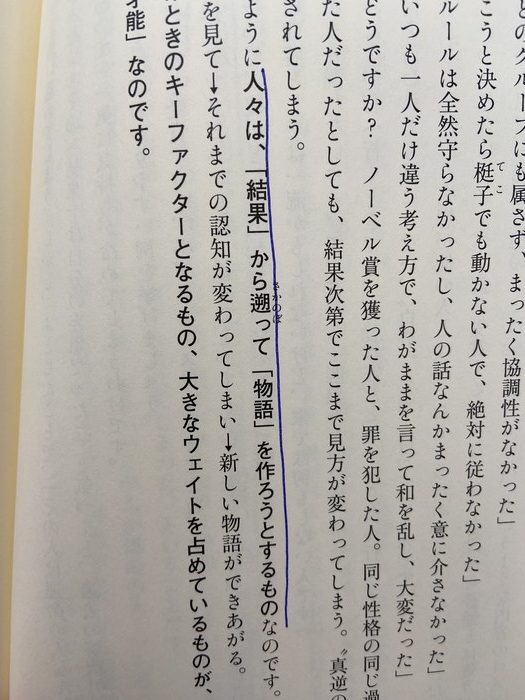 どのグループにも属さず、まったく協調性がなかった」
こうと決めたら梃子でも動かない人で、絶対に従わなかった」
ルールは全然守らなかったし、人の話なんかまったく意に介さなかった」
いつも一人だけ違う考え方で、わがままを言って和を乱し、大変だった」
どうですか？　ノーベル賞を獲った人と、罪を犯した人。同じ性格の同じ過
た人だったとしても、結果次第でここまで見方が変わってしまう。〝真逆の
されてしまう。
ように人々は、「結果」から遡って「物語」を作ろうとするものなのです。
を見て→それまでの認知が変わってしまい→新しい物語ができあがる。
ときのキーファクターとなるもの、大きなウェイトを占めているものが、
才能」なのです。